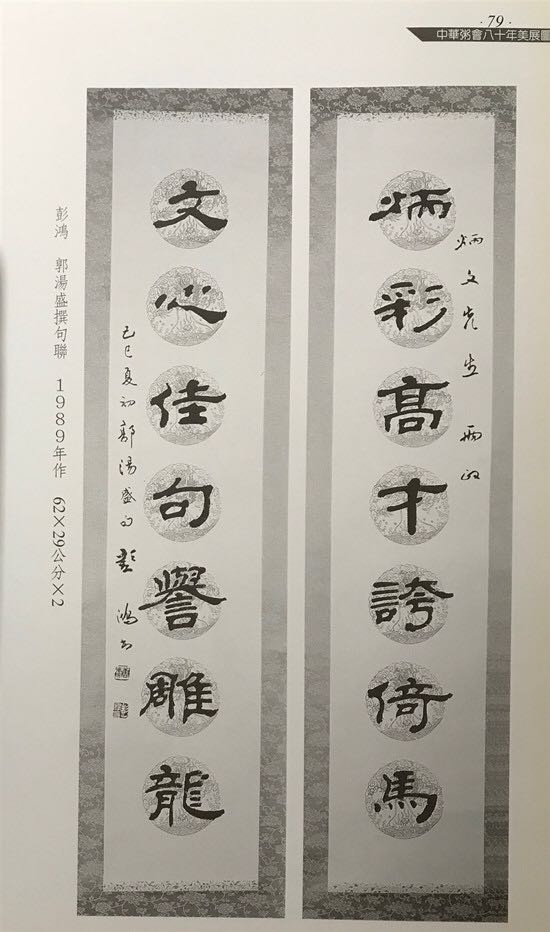 ·79·
中華粥會八十年美展圖
炳文先生兩政
炳彩高才誇倚馬
文心佳句譽雕龍
己巳夏初郭湯盛句彭鴻書
彭鴻 郭湯盛撰句聯 1989年作 62×29公分×2